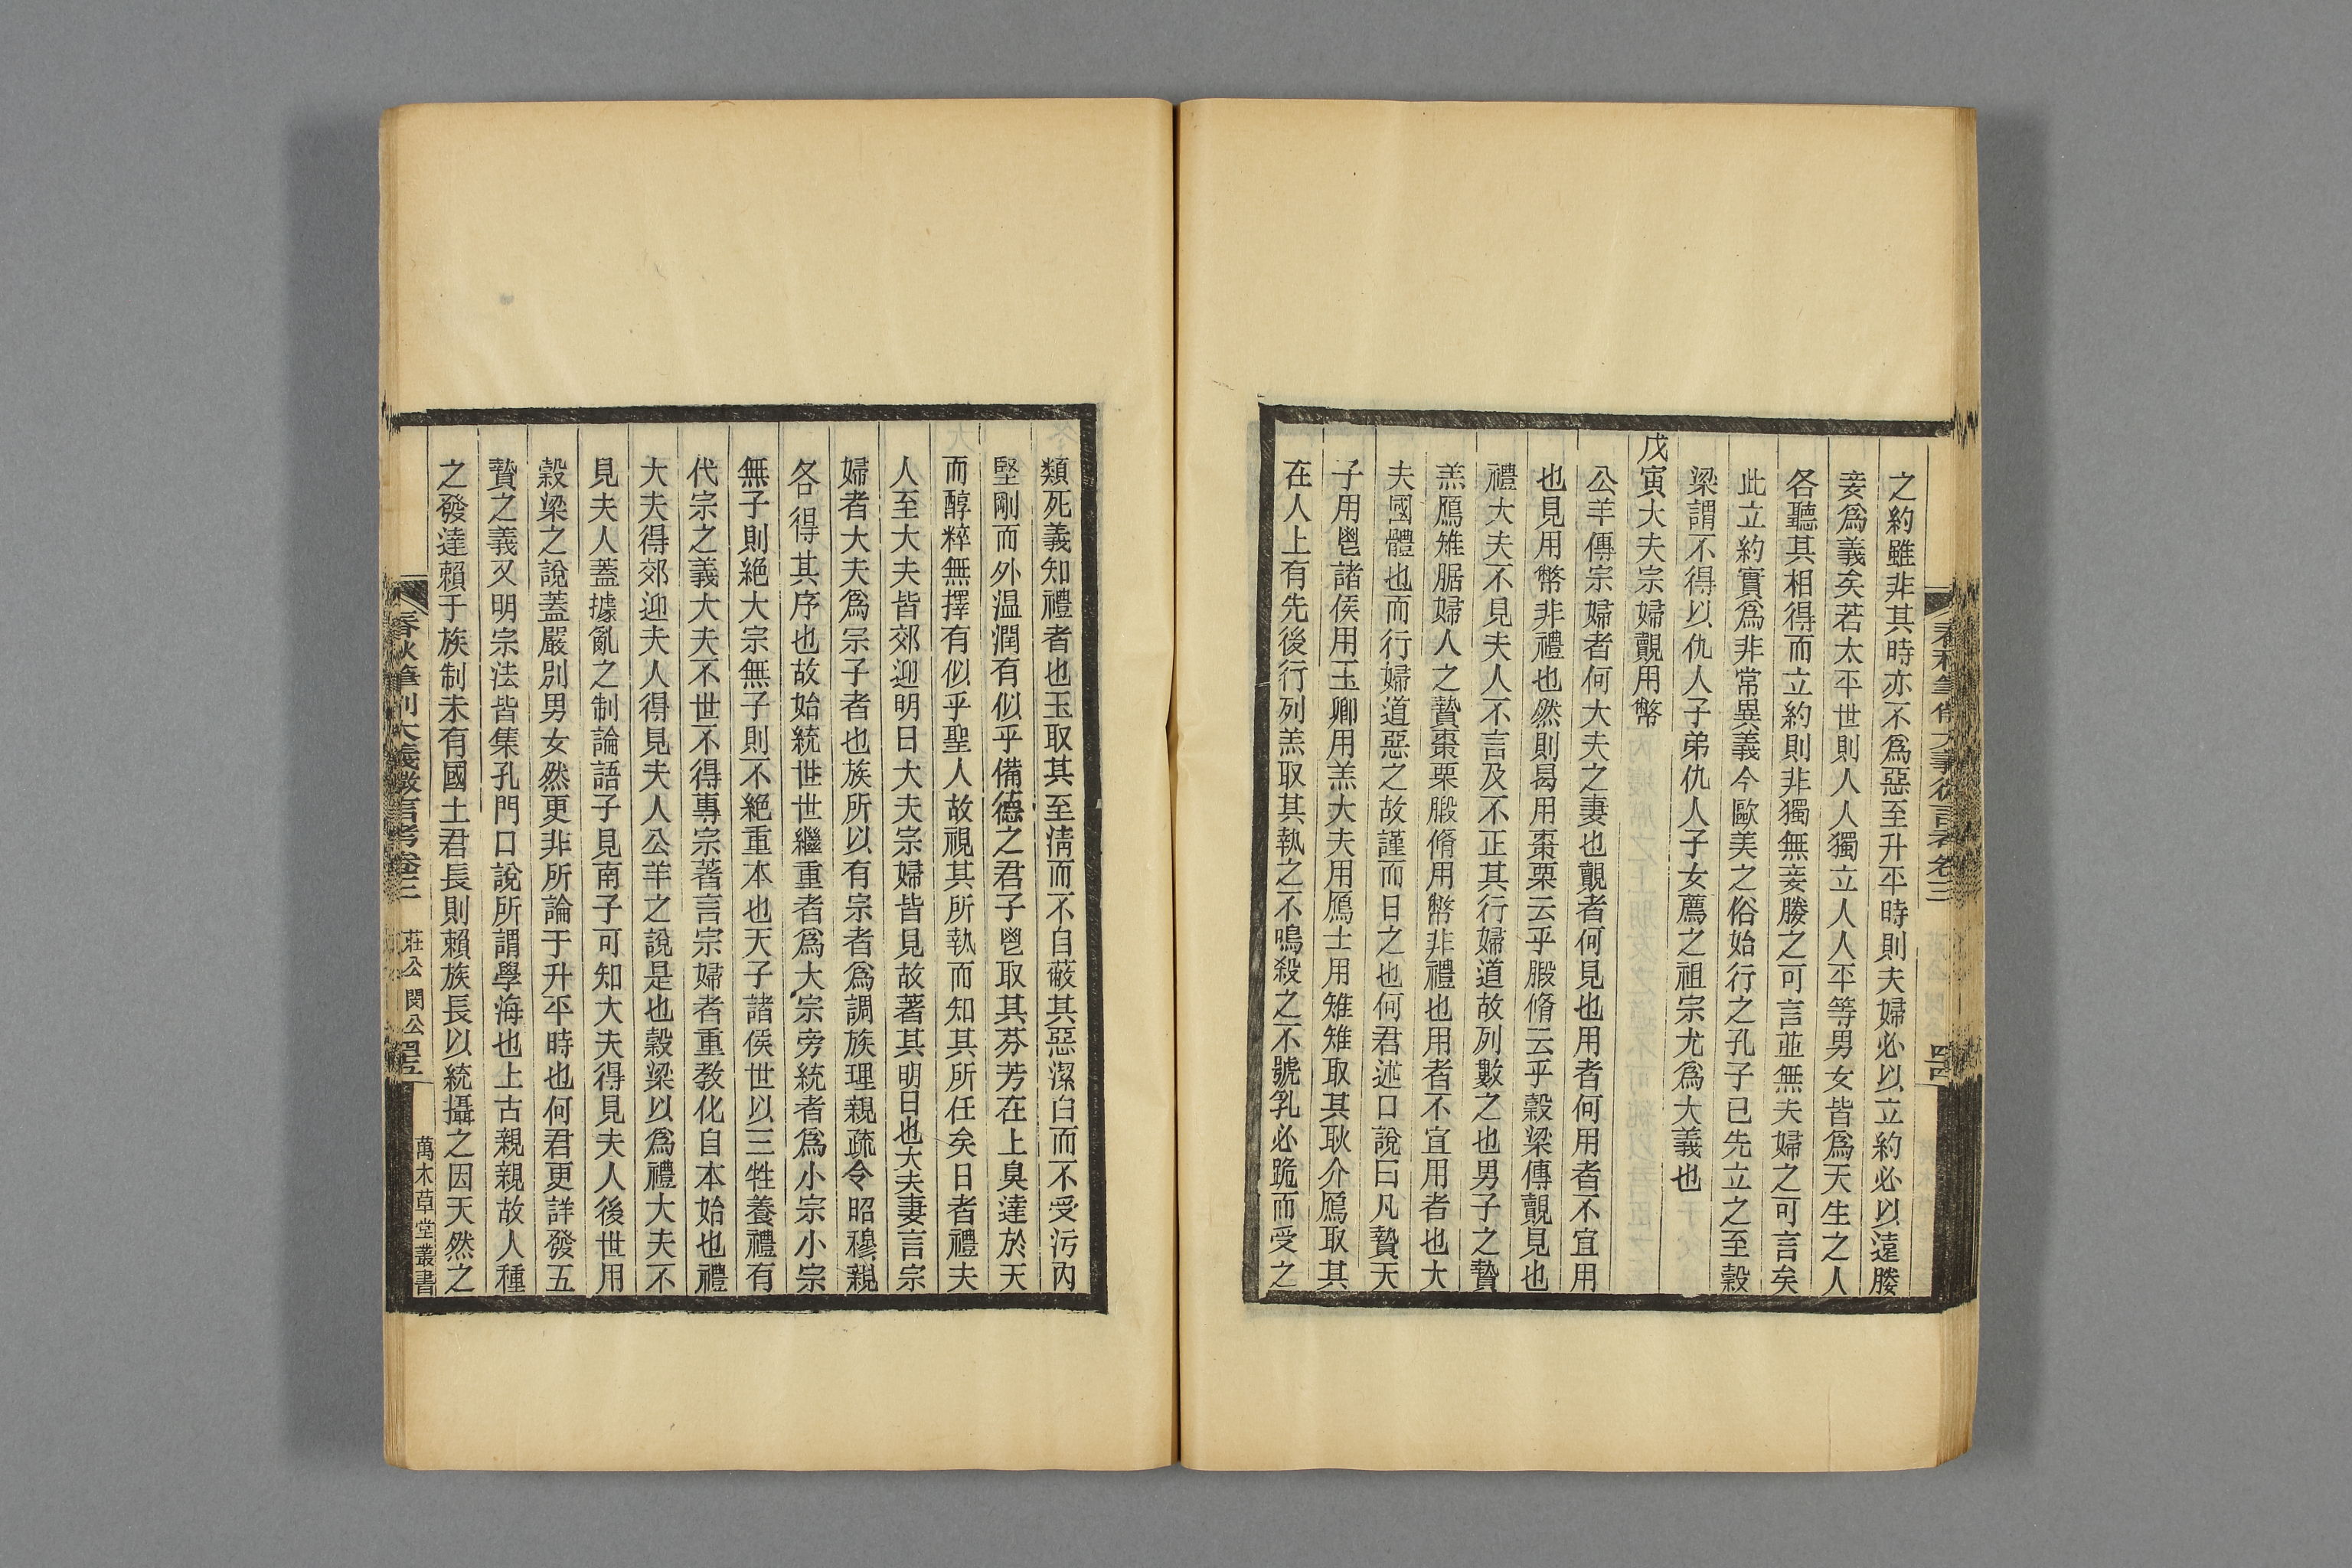 之約雖非其時亦不爲惡至升平時則夫婦必以立約必以遠媵
妾爲義矣若太平世則人人獨立人人平等男女皆爲天生之人
各聽其相得而立約則非獨無妾媵之可言並無夫婦之可言矣
此立約實爲非常異義今歐美之俗始行之孔子已先立之至穀
梁謂不得以仇人子弟仇人子女薦之祖宗尤爲大義也
戊寅大夫宗婦覿用幣
公羊傳宗婦者何大夫之妻也覿者何見也用者何用者不宜用
也見用幣非禮也然則曷用棗栗云乎腶脩云乎穀梁傳覿見也
禮大夫不見夫人不言及不正其行婦道故列數之也男子之贄
羔鴈雉腒婦人之贄棗栗腶脩用幣非禮也用者不宜用者也大
夫國體也而行婦道惡之故謹而日之也何君述口說曰凡贄天
子用鬯諸侯用玉卿用羔大夫用鴈士用雉雉取其耿介鴈取其
在人上有先後行列羔取其執之不鳴殺之不號乳必跪而受之
類死義知禮者也玉取其至清而不自蔽其惡潔白而不受污內
堅剛而外温潤有似乎備德之君子鬯取其芬芳在上臭達於天
而醇粹無擇有似乎聖人故視其所執而知其所任矣日者禮夫
人至大夫皆郊迎明日大夫宗婦皆見故著其明日也大夫妻言宗
婦者大夫爲宗子者也族所以有宗者爲調族理親疏令昭穆親
各得其序也故始統世世繼重者爲大宗旁統者爲小宗小宗
無子則絕大宗無子則不絕重本也天子諸侯世以三牲養禮有
代宗之義大夫不世不得專宗著言宗婦者重教化自本始也禮
大夫得郊迎夫人得見夫人公羊之說是也穀梁以爲禮大夫不
見夫人蓋據亂之制論語子見南子可知大夫得見夫人後世用
穀梁之說蓋嚴別男女然更非所論于升平時也何君更詳發五
贄之義又明宗法皆集孔門口說所謂學海也上古親親故人種
之發達賴于族制未有國土君長則賴族長以統攝之因天然之
春秋筆削大義微言考卷三
莊公 閔公
萬木草堂叢書